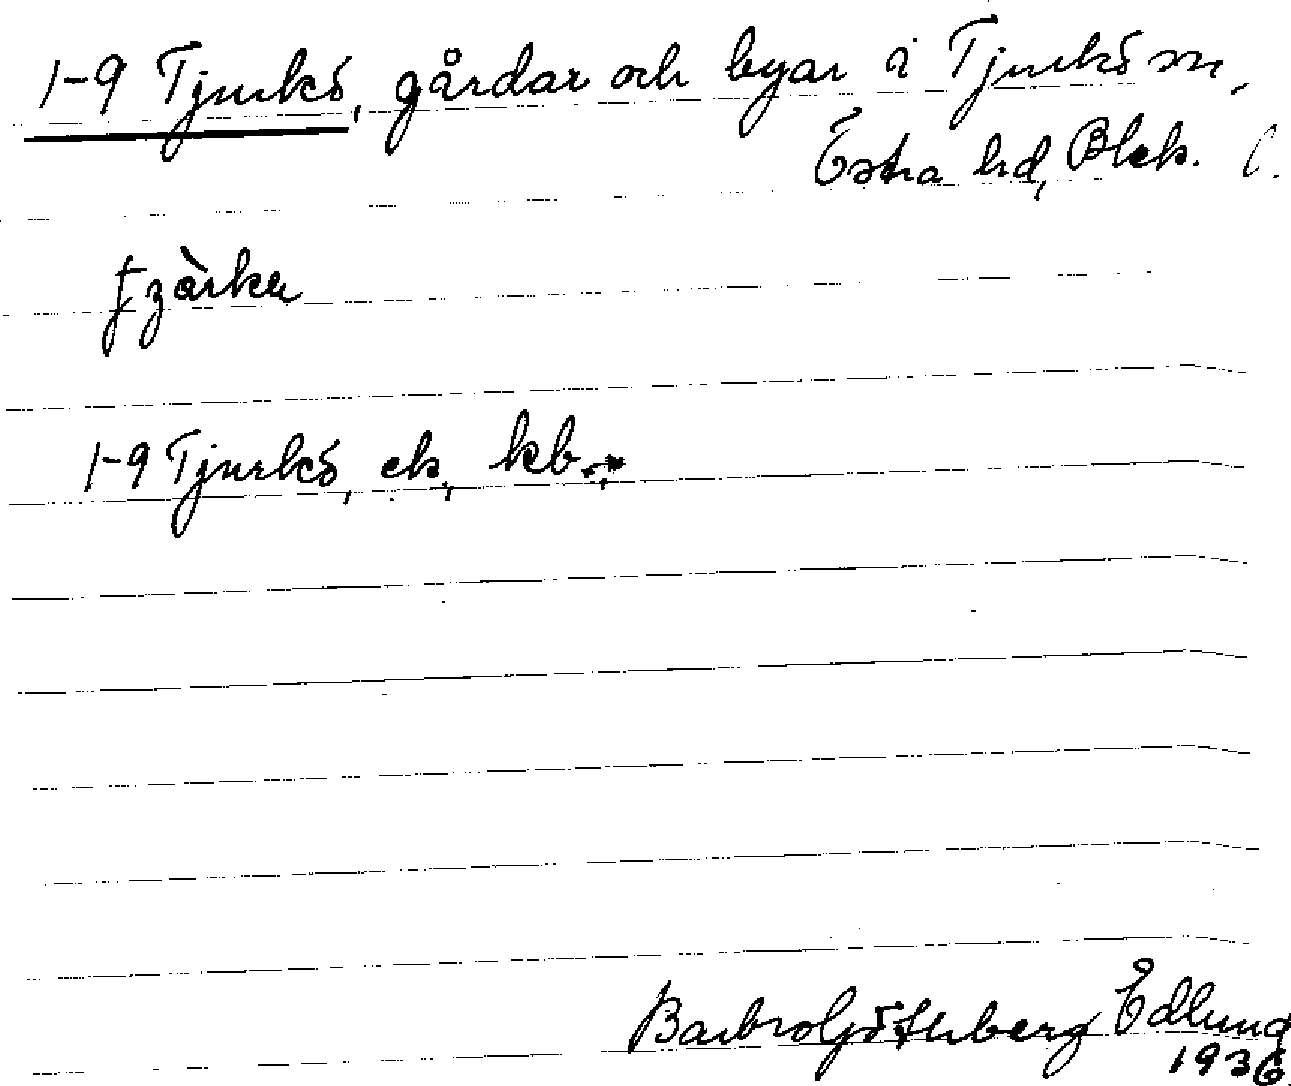 1-9 Tjurkö, gårdar och byar i Tjurkö sn,
Östra hd, Blek. l.
1-9 Tjurkö, ek., kb.,
Barbro Götherberg Edlund
1936